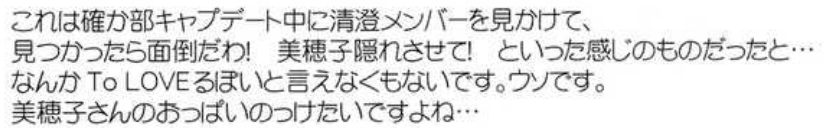 これは確か部キャプデート中に清澄メンバーを見かけて、
見つかったら面倒だわ!　美穂子隠れさせて!　といった感じのものだったと…
なんかTo LOVEるぽいと言えなくもないです。ウソです。
美穂子さんのおっぱいのっけたいですよね…